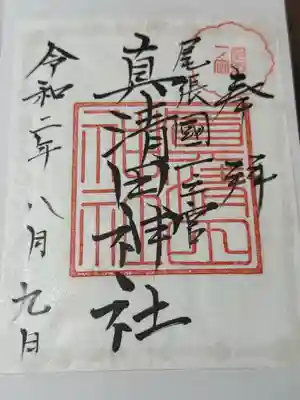 奉拝
尾張國一之宮
真清田神社
令和二年八月九日